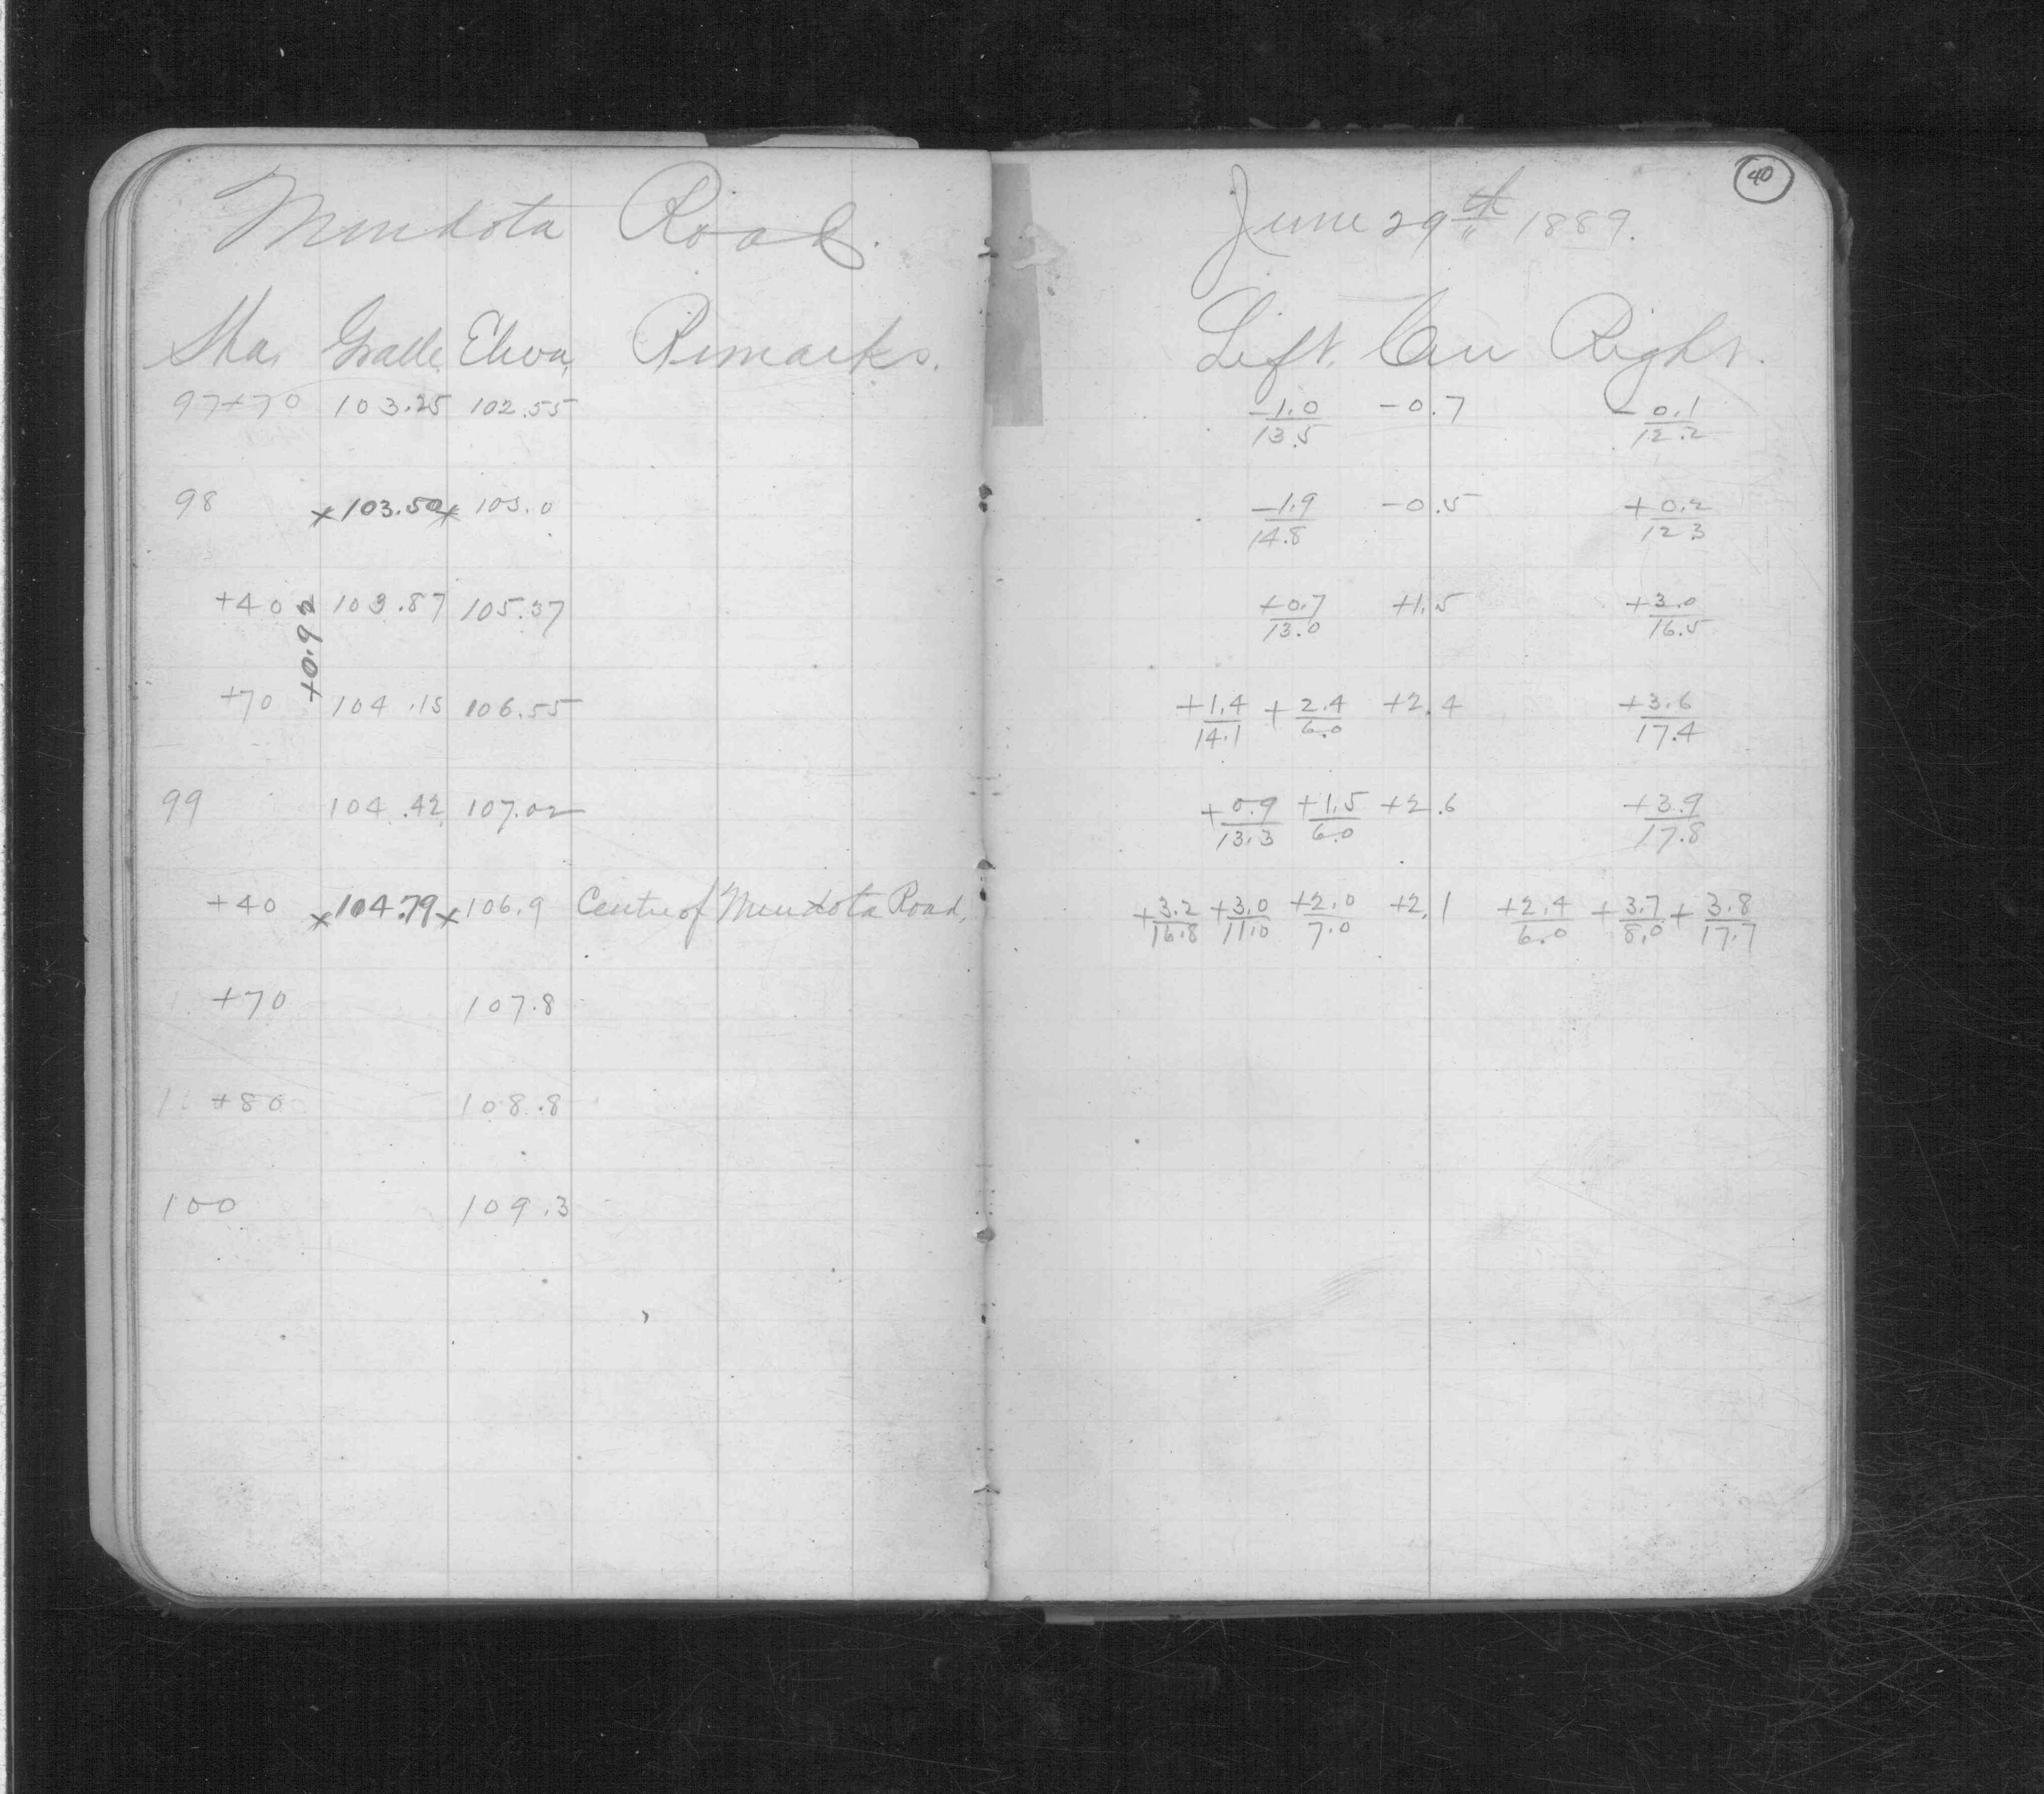 Mendota Road.
Sta. Grade Eleva. Remarks.
97+70 103.25 102.55
98 x103.50x 103.0
+40 103.87 105.37
+0.92
+70 104.15 106.55
99 104.42 107.02
+40 x104.79x 106.9 Centre of Mendota Road,
+70 107.8
+80 108.8
100 109.3
40
June 29th 1889.
Left. Cen Right.
-1.0/13.5 -0.7 -0.1/12.2
-1.9/14.8 -0.5 +0.2/12.3
+0.7/13.0 +1.5 +3.0/16.5
+1.4/14.1 +2.4/6.0 +2.4 +3.6/17.4
+0.9/13.3 +1.5/6.0 +2.6 +3.9/17.8
+3.2/16.8 +3.0/11.0 +2.0/7.0 +2.1 +2.4/6.0 +3.7/8.0 +3.8/17.7